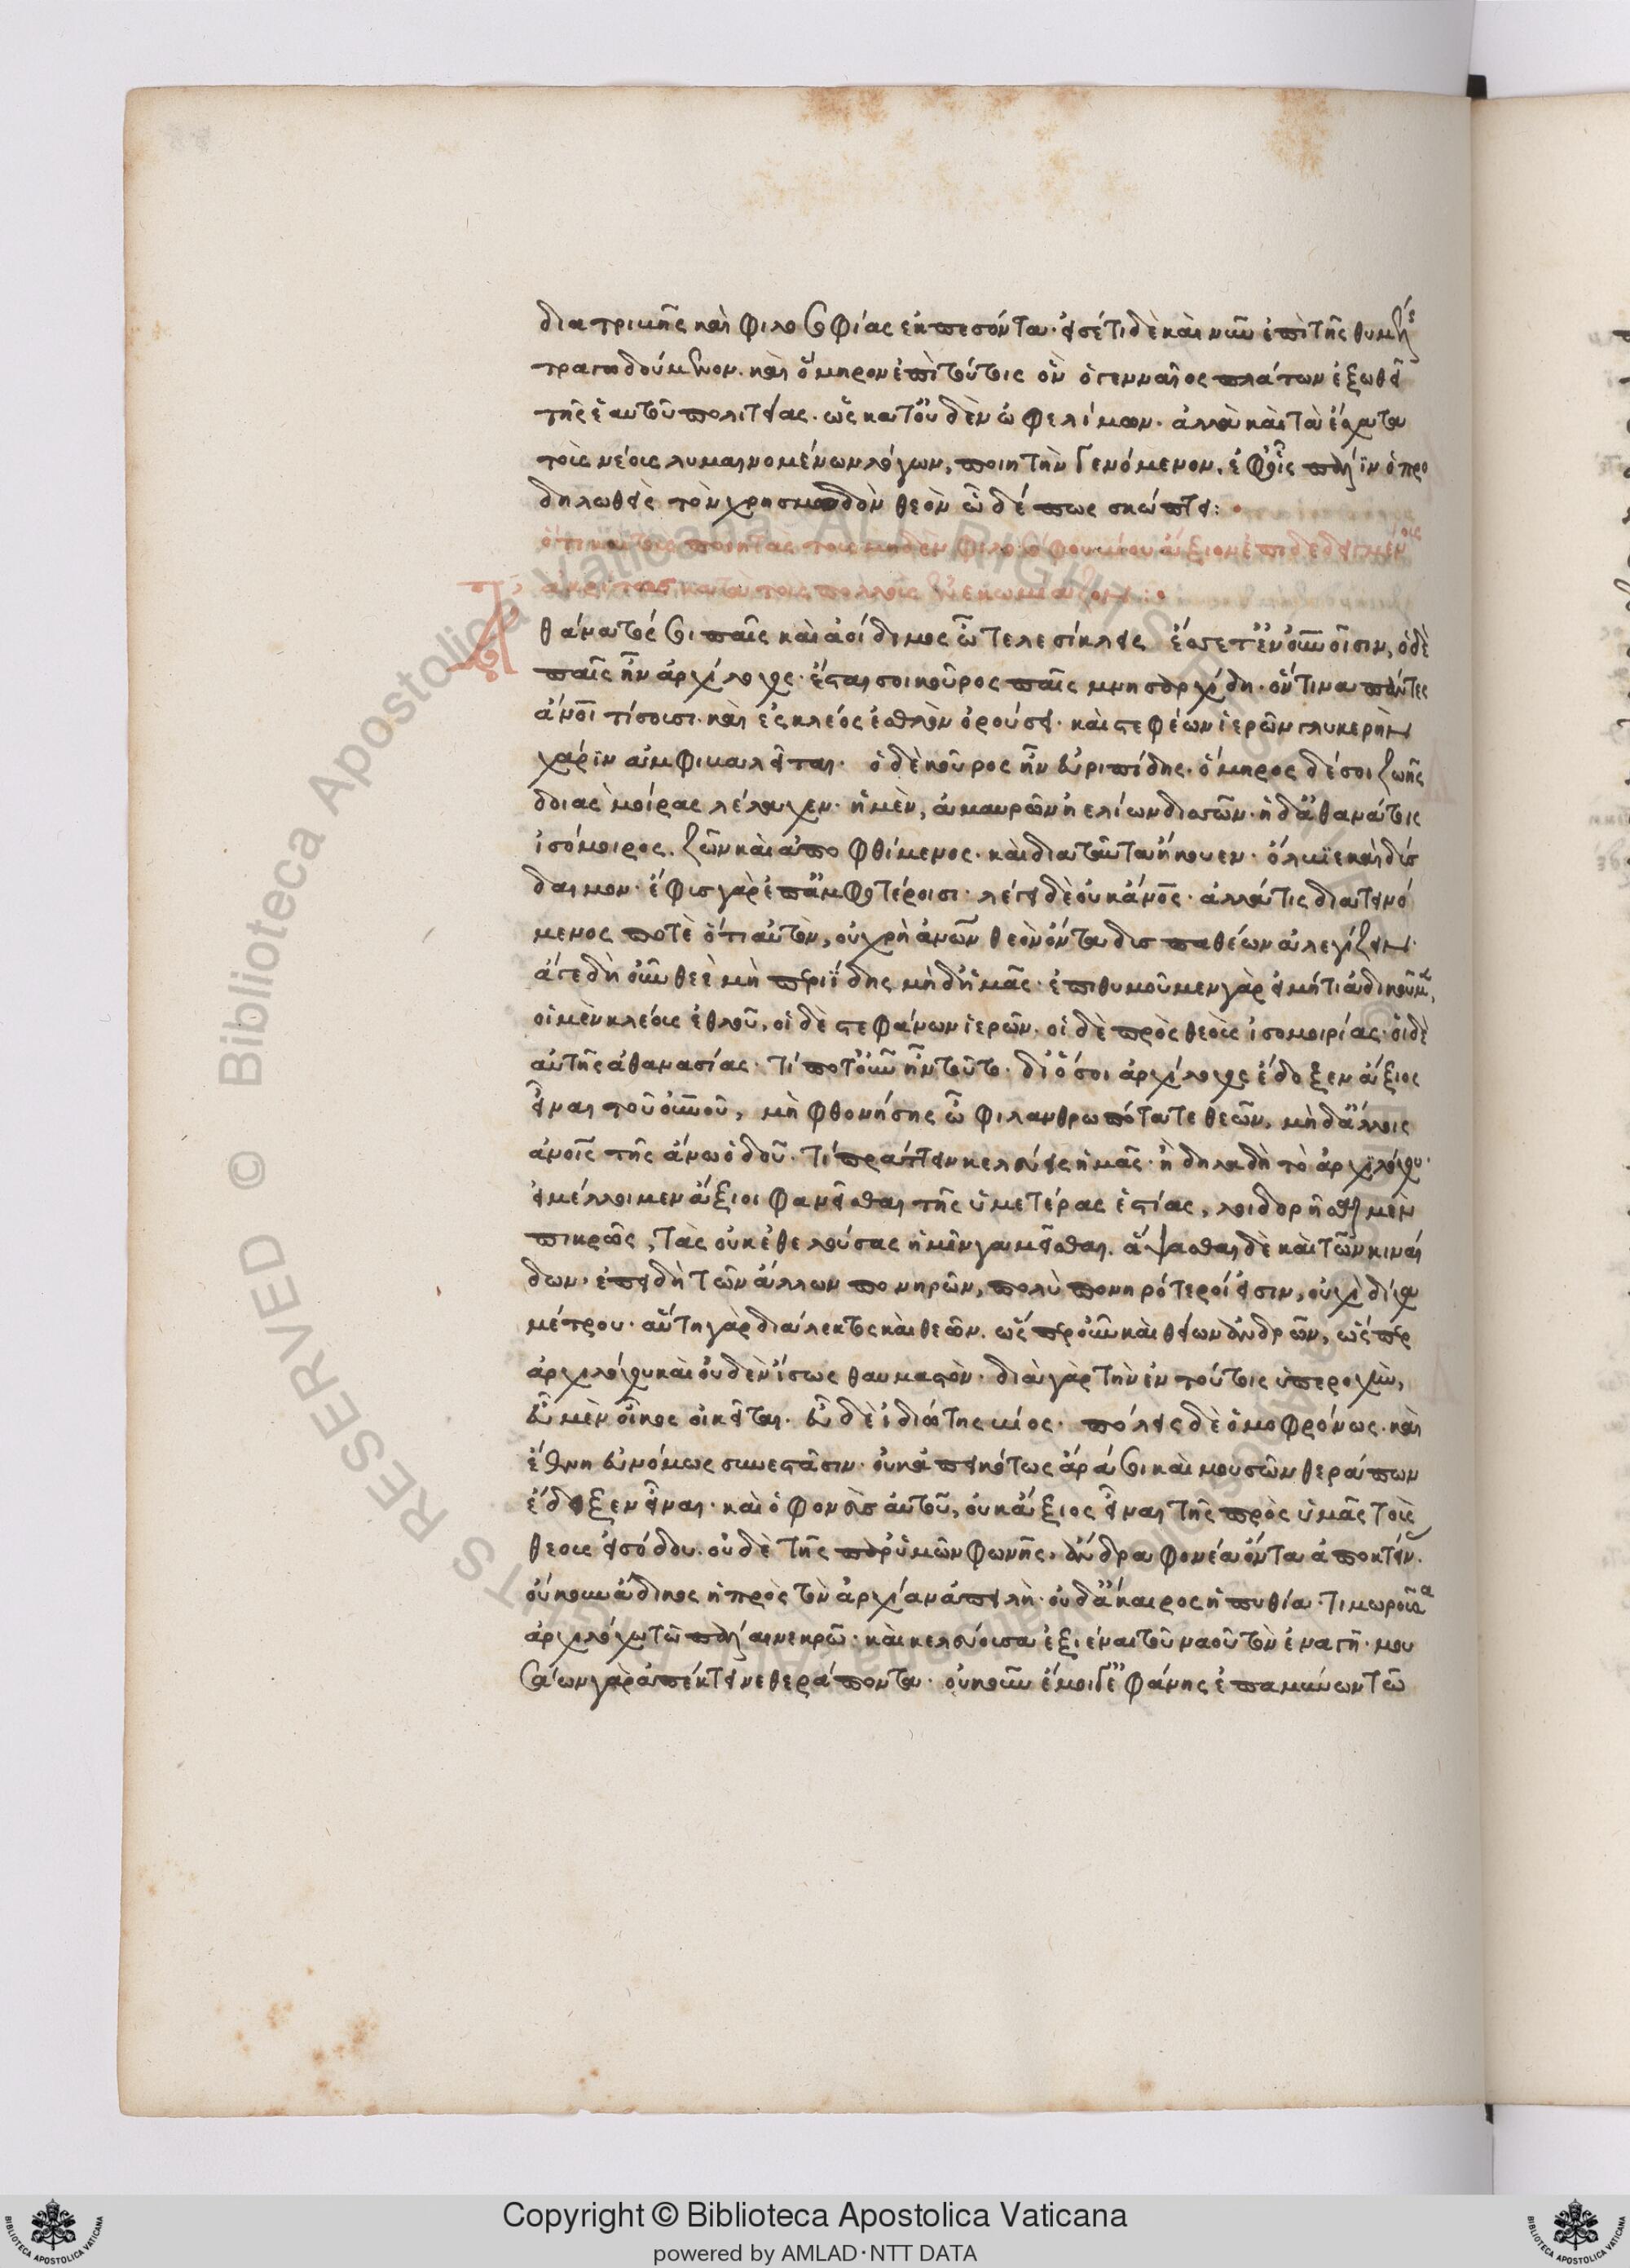 διατριβῆς καὶ φιλοσοφίας ἐκπεσόντα· εἰσέτι δὲ καὶ νῦν ἐπὶ τῆς θυμέλης
τραγῳδούμενον. καὶ ὅμηρον ἐπὶ τούτοις ὃν ὁ γενναῖος πλάτων ἐξωθεῖ
τῆς ἑαυτοῦ πολιτείας. ὡς κατ' οὐδὲν ὠφελίμων. ἀλλὰ καὶ τὰ ἔσχατα
τοῖς νέοις λυμαινομένων λόγων, ποιητὴν γενόμενον. ἐφ' οἷς πάλιν ὁ προ
δηλωθεὶς τὸν χρησμῳδὸν θεὸν ὧδέ πως σκώπτει:
ὅτι καὶ τοὺς ποιητὰς τοὺς μηδὲν φιλοσόφου βίου ἄξιον ἐπιδεδειγμένους
ἀκρίτως κατὰ τοὺς πολλοὺς ἐνεκωμίαζον:
θάνατός σοι παῖς καὶ ἀοίδιμος ὦ τελεσίκλεις ἔσσετ' ἐν ἀνθρώποισιν, ὁ δὲ
παῖς ἦν ἀρχίλοχος. ἔσται σοι κοῦρος παῖς μνησαρχίδη. ὅντινα πάντες
ἄνθρωποι τίσουσι. καὶ ἐς κλέος ἐσθλὸν ὀρούσει. καὶ στεφέων ἱερῶν γλυκερὴν
χάριν ἀμφικαλεῖται. ὁ δὲ κοῦρος ἦν εὐριπίδης. ὅμηρος δέ σοι ζωῆς
δοιὰς μοίρας λέλαχεν. ἡ μὲν, ἀμαυρῶν ἠελίων δισσῶν. ἡ δ' ἀθανάτοις
ἰσόμοιρος. ζῶν καὶ ἀποφθίμενος. καὶ διὰ ταῦτα ἤκουεν. ὄλβιε καὶ δύσ
δαιμον. ἔφυς γὰρ ἐπ' ἀμφοτέροισι. λέγει δὲ οὐκ ἄνθρωπος. ἀλλά τις διατεινό
μενος ποτὲ ὅτι αὐτὸν, οὐ χρὴ ἀνθρώπων θεὸν ὄντα δυσπαθέων ἀλεγίζειν.
ἄγε δὴ οὖν θεὲ μὴ περιίδῃς μηδ' ἡμᾶς. ἐπιθυμοῦμεν γὰρ εἰ μή τι ἀδικοῦμεν,
οἱ μὲν κλέους ἐσθλοῦ, οἱ δὲ στεφάνων ἱερῶν. οἱ δὲ πρὸς θεοὺς ἰσομοιρίας. οἱ δὲ
αὐτῆς ἀθανασίας. τί ποτ' οὖν ἦν τοῦτο. δι' ὅ σοι ἀρχίλοχος ἔδοξεν ἄξιος
εἶναι τοῦ οὐρανοῦ, μὴ φθονήσῃς ὦ φιλανθρωπότατε θεῶν, μηδ' ἄλλοις
ἀνθρώποις τῆς ἄνω ὁδοῦ. τί πράττειν κελεύεις ἡμᾶς. ἢ δηλαδὴ τὸ ἀρχιλόχου.
εἰ μέλλοιμεν ἄξιοι φανεῖσθαι τῆς ὑμετέρας ἑστίας, λοιδορῆσαι μὲν
πικρῶς, τὰς οὐκ ἐθελούσας ἡμῖν γαμεῖσθαι. ἅψασθαι δὲ καὶ τῶν κιναί
δων. ἐπειδὴ τῶν ἄλλων πονηρῶν, πολὺ πονηρότεροί εἰσιν, οὐχὶ δίχα
μέτρου. αὕτη γὰρ διάλεκτος καὶ θεῶν. ὥσπερ οὖν καὶ θείων ἀνδρῶν, ὥσπερ
ἀρχιλόχου καὶ οὐδὲν ἴσως θαυμαστόν. διὰ γὰρ τὴν ἐν τούτοις ὑπεροχὴν,
εὖ μὲν οἶκος οἰκεῖται. εὖ δὲ ἰδιώτης βίος. πόλεις δὲ ὁμοφρόνως. καὶ
ἔθνη εὐνόμως συνεστᾶσιν. οὐκ ἀπεικότως ἄρα σοι καὶ μουσῶν θεράπων
ἔδοξεν εἶναι. καὶ ὁ φονεὺς αὐτοῦ, οὐκ ἄξιος εἶναι τῆς πρὸς ὑμᾶς τοὺς
θεοὺς εἰσόδου. οὐδὲ τῆς παρ' ὑμῶν φωνῆς, ἄνδρα φονέα ὄντα ἀποκτείν.
οὔκουν ἄδικος ἡ πρὸς τὸν ἀρχίαν ἀπειλή. οὐδ' ἄκαιρος ἡ πυθία. τιμωροῦσα
ἀρχιλόχῳ τῷ πάλαι νεκρῷ. καὶ κελεύουσα ἐξιέναι τοῦ ναοῦ τὸν ἐναγῆ. μου
σάων γὰρ ἀπέκτεινε θεράποντα. οὐκοῦν ἔμοιγ' ἐφάνης ἐπαμύνων τῷ